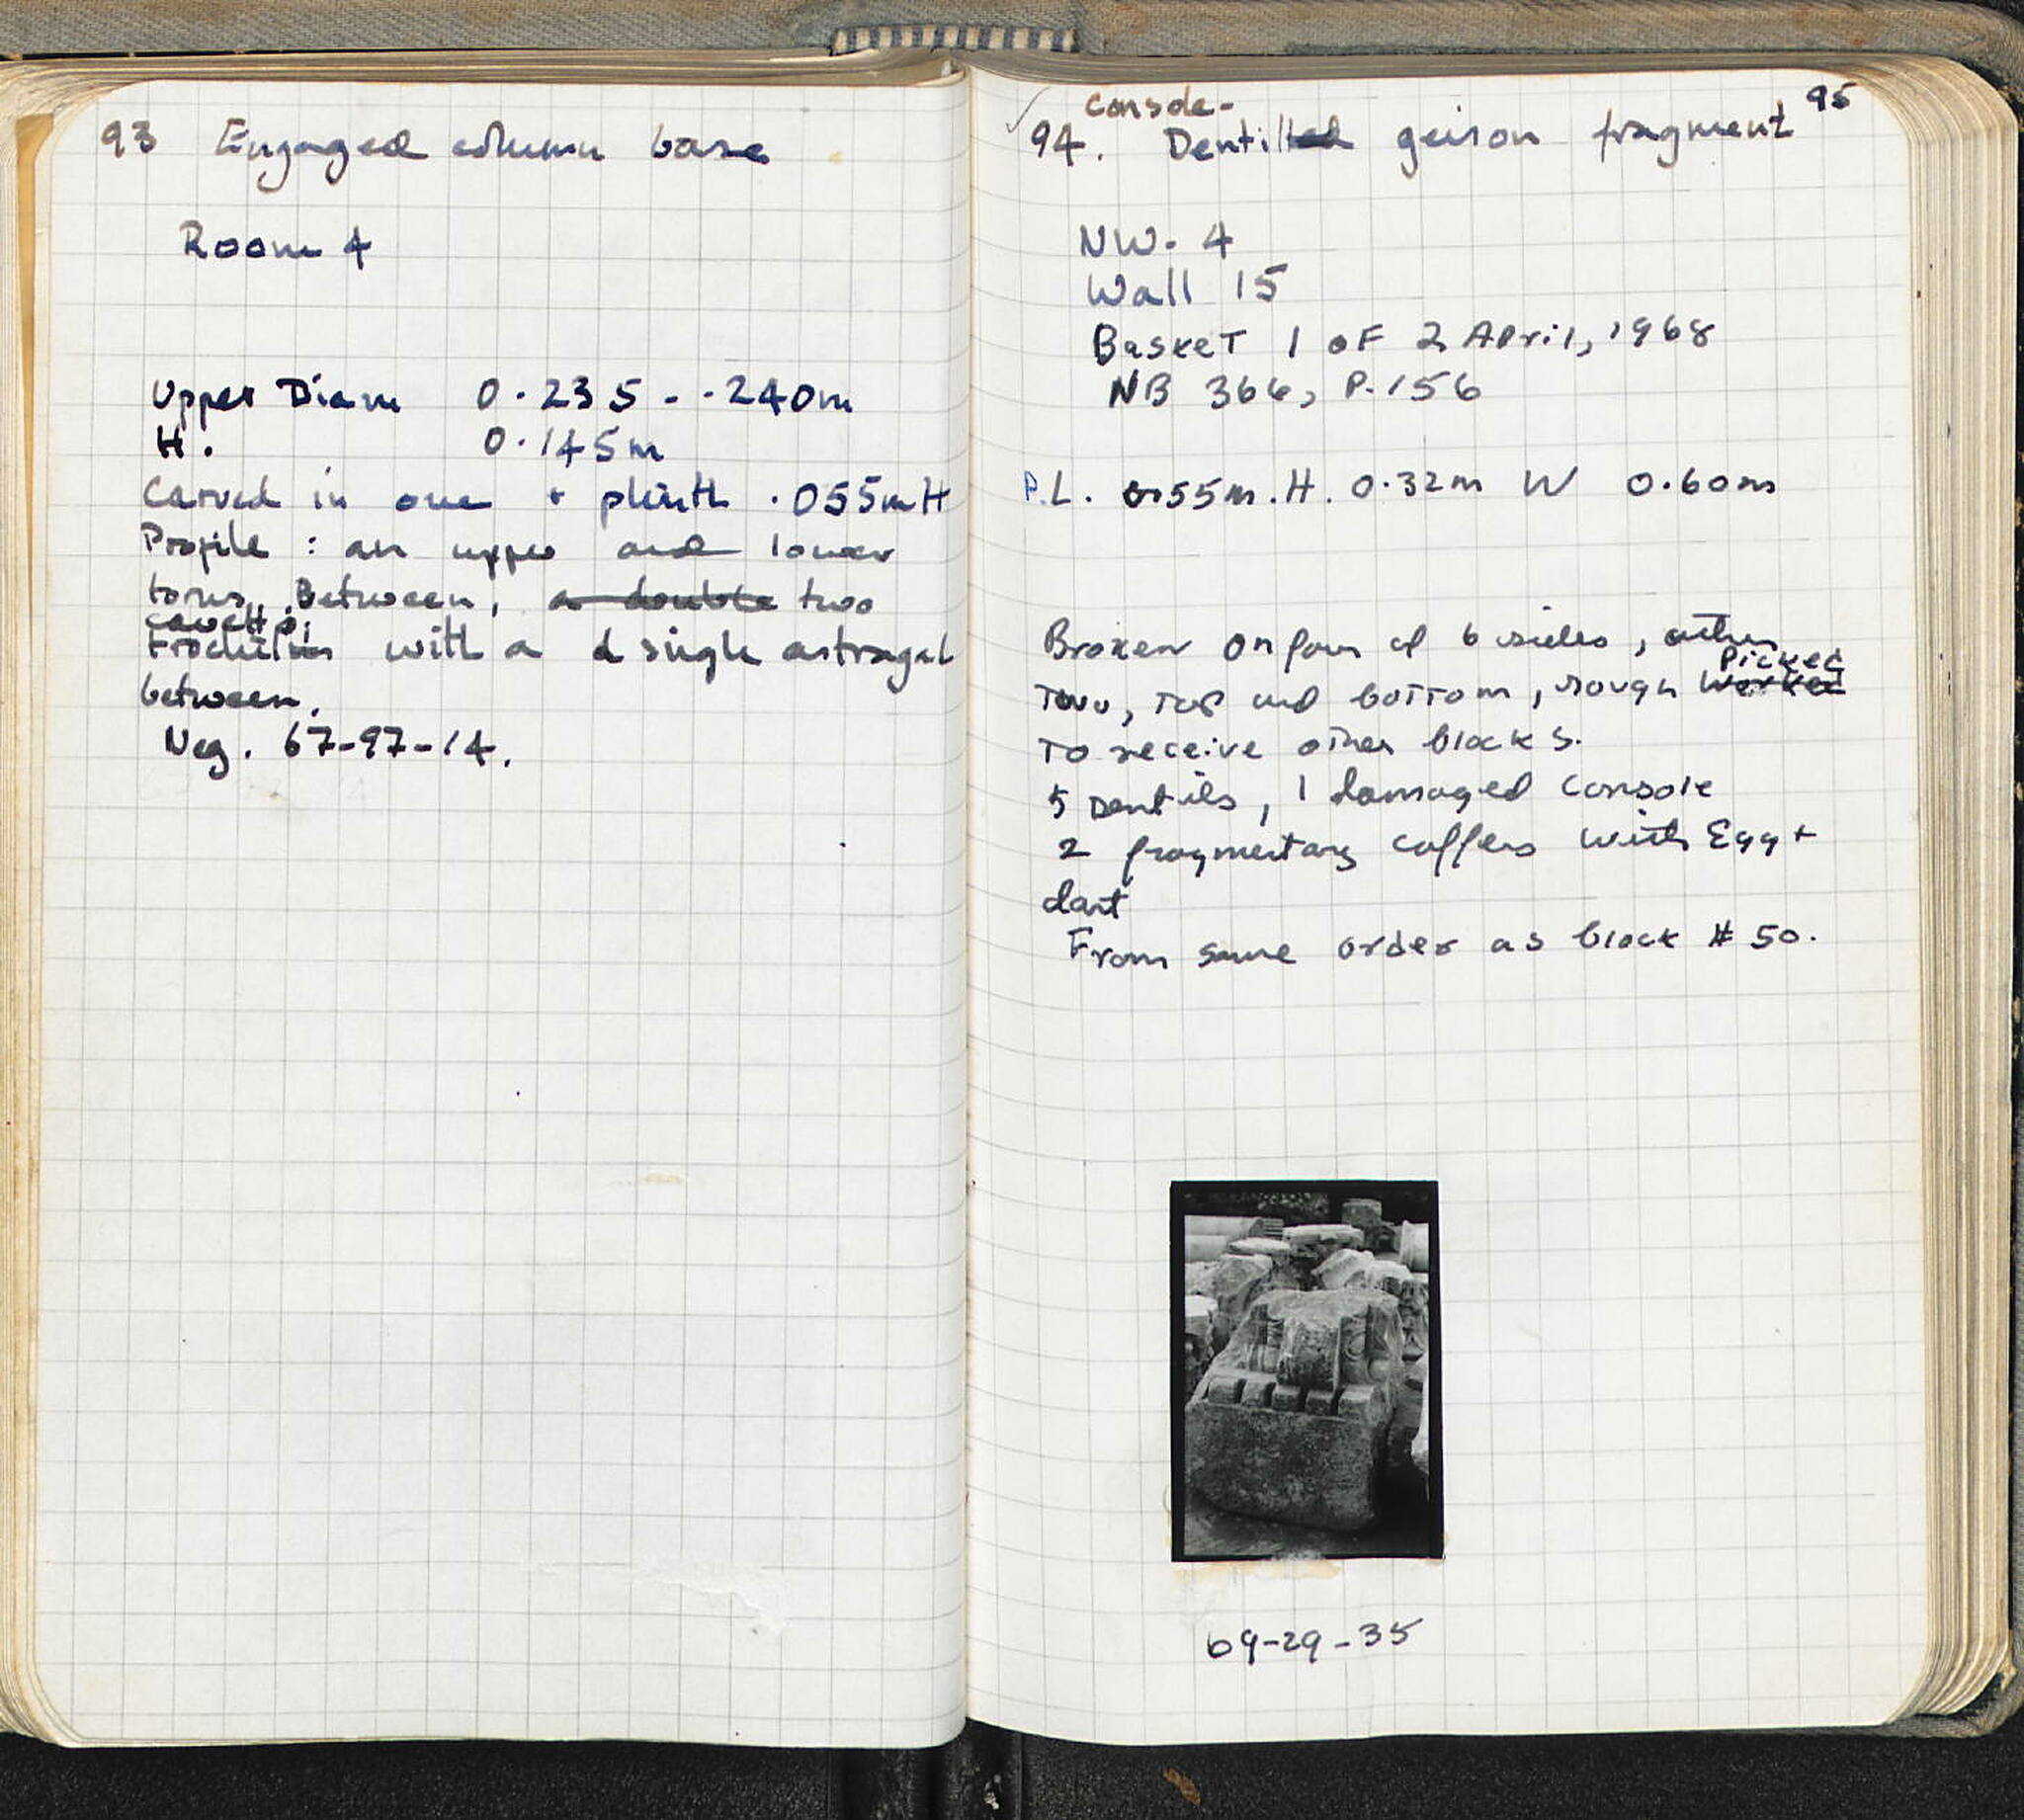 93 Engaged column base
Room 4
Upper Diam 0.235 - .240m
H. 0.145m
Carved in one + plinth .055m H
Profile : an upper and lower
torus. Between, a double two
cavetto;
trochilus with a single astragal
between.
Neg. 67-97-14.
95
Console-
94. Dentilled geison fragment
NW. 4
Wall 15
BaskeT 1 oF 2 April, 1968
NB 366, P. 156
P.L. 0.55m. H. 0.32m W 0.60m
Broken on four of 6 sides, other
Picked
Two, Top and bottom, rough Worked
To receive other blocks.
5 Dentils, 1 damaged console
2 fragmentary coffers with Egg +
dart
From same order as block # 50.
69-29-35